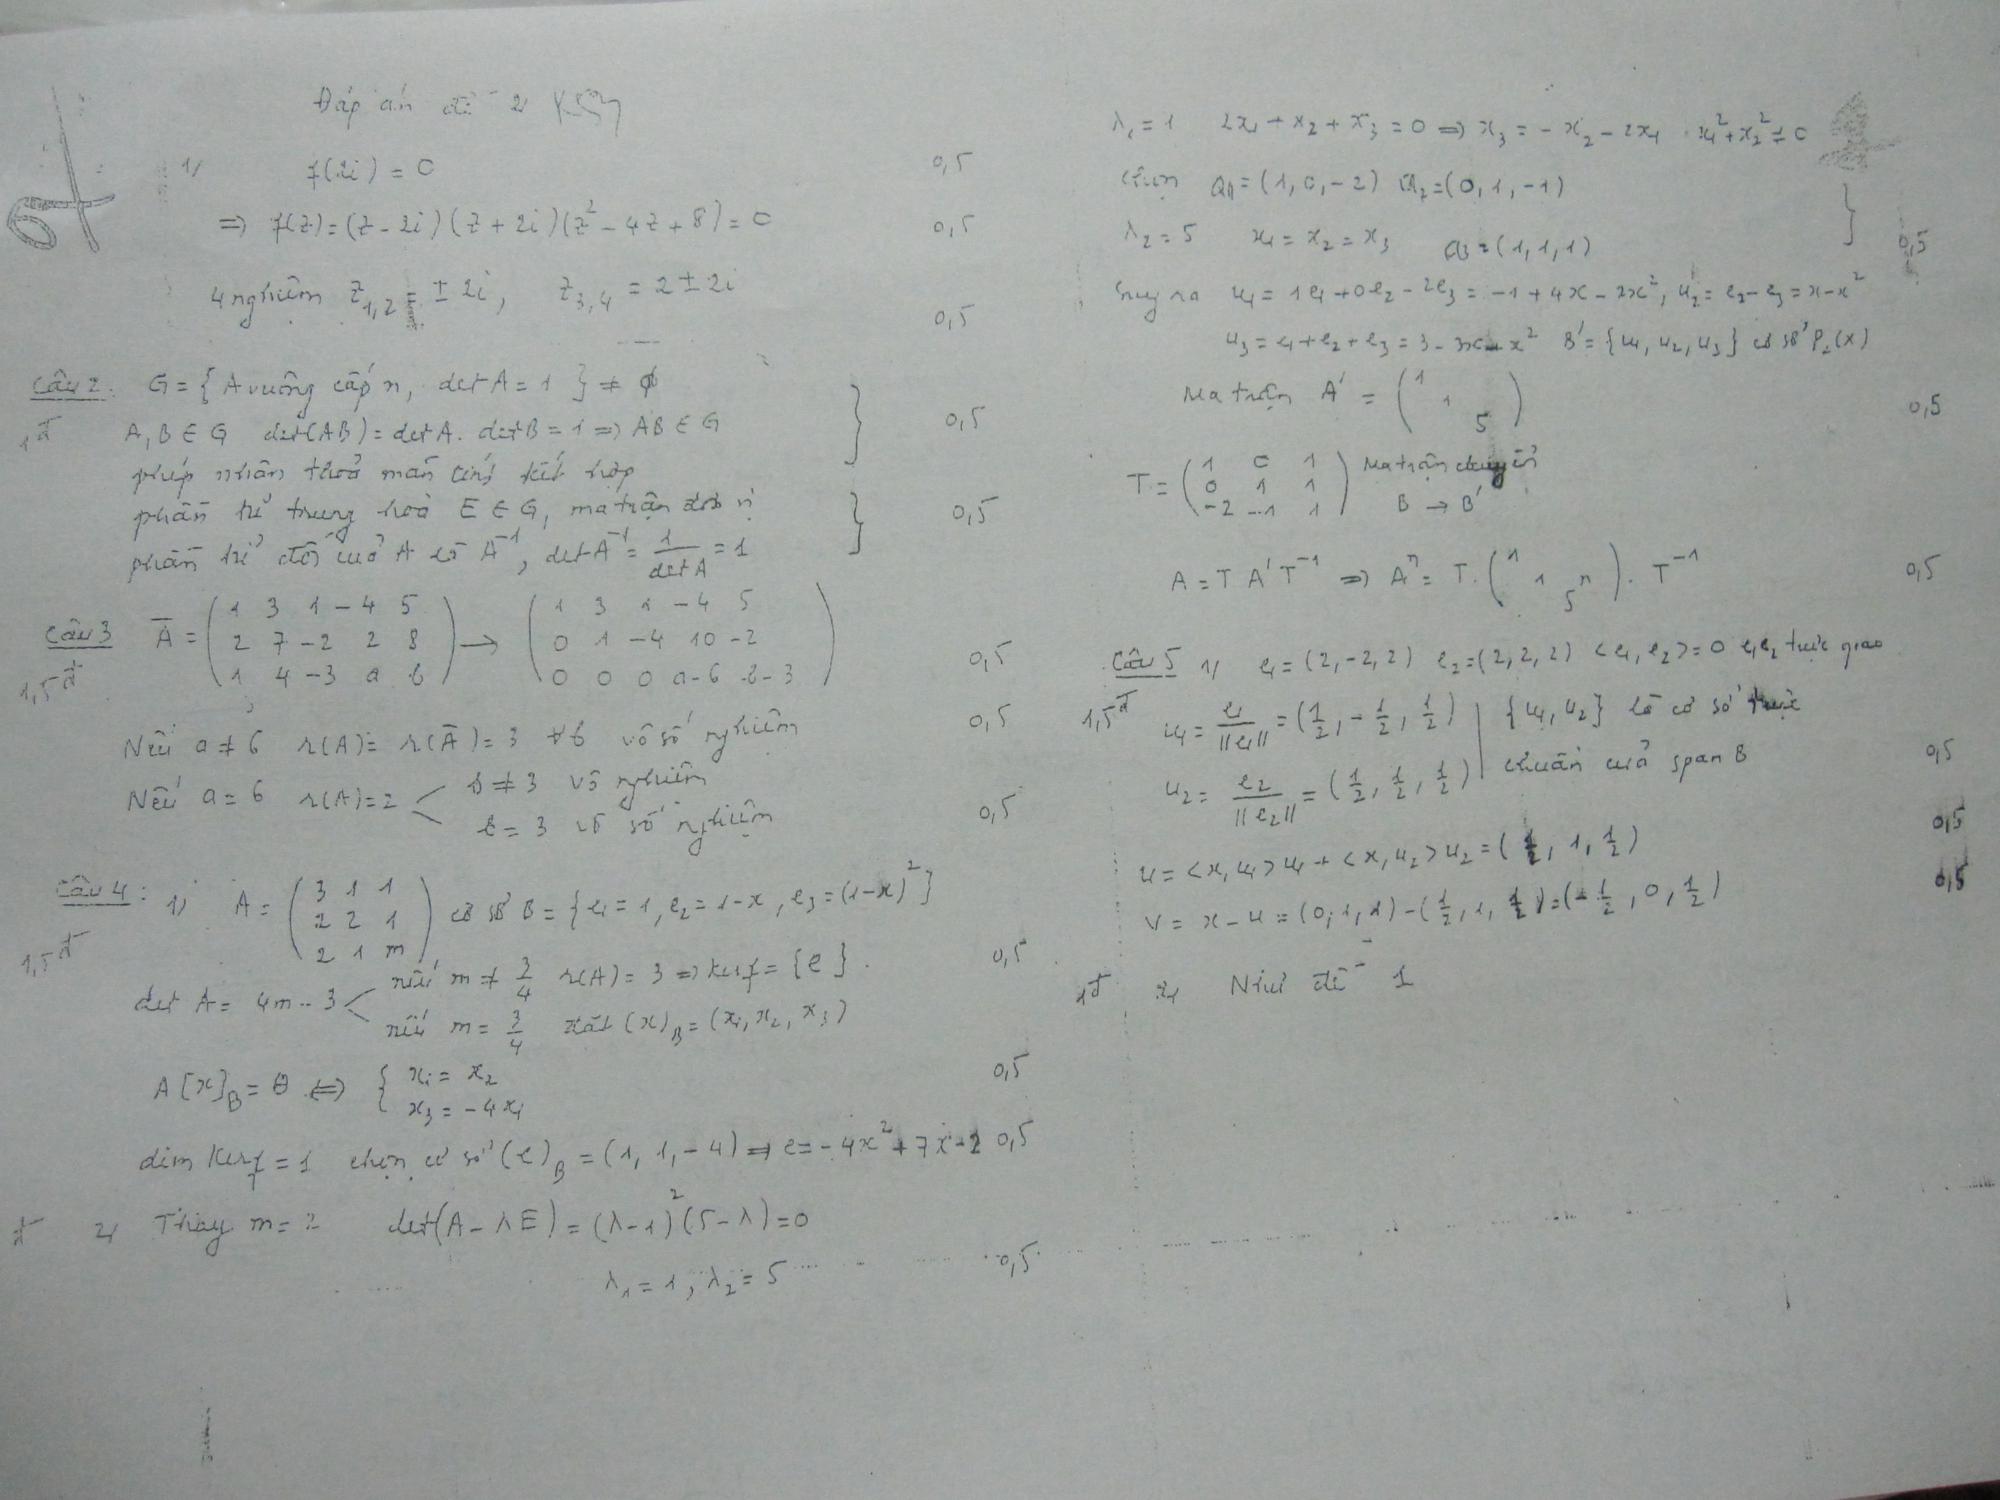 Đáp án đề 2 K57
1/ f(2i) = 0 0,5
⇒ f(z) = (z - 2i)(z + 2i)(z² - 4z + 8) = 0 0,5
4 nghiệm z₁,₂ = ± 2i, z₃,₄ = 2 ± 2i 0,5
Câu 2. G = {A vuông cấp n, det A = 1} ≠ ∅
1đ A, B ∈ G det(AB) = det A. det B = 1 ⇒ AB ∈ G 0,5
phép nhân thoả mãn tính kết hợp
phần tử trung hoà E ∈ G, ma trận đơn vị 0,5
phần tử đối của A là A⁻¹, det A⁻¹ = 1/det A = 1
Câu 3 Ā = (1 3 1 -4 5; 2 7 -2 2 8; 1 4 -3 a b) → (1 3 1 -4 5; 0 1 -4 10 -2; 0 0 0 a-6 b-3) 0,5
1,5đ
Nếu a ≠ 6 r(A) = r(Ā) = 3 ∀b vô số nghiệm 0,5
Nếu a = 6 r(A) = 2 < b ≠ 3 vô nghiệm
b = 3 vô số nghiệm 0,5
Câu 4: 1) A = (3 1 1; 2 2 1; 2 1 m) cơ sở B = {e₁ = 1, e₂ = 1-x, e₃ = (1-x)²}
1,5đ
det A = 4m - 3 < nếu m ≠ 3/4 r(A) = 3 ⇒ Kerf = {θ}. 0,5
nếu m = 3/4 đặt (x)_B = (x₁, x₂, x₃)
A[x]_B = θ ⇔ { x₁ = x₂ 0,5
x₃ = -4x₁
dim Kerf = 1 chọn cơ sở (e)_B = (1, 1, -4) ⇒ e = -4x² + 7x - 2 0,5
đ 2/ Thay m = 2 det(A - λE) = (λ-1)²(5-λ) = 0
λ₁ = 1, λ₂ = 5 0,5
λ₁ = 1 2x₁ + x₂ + x₃ = 0 ⇒ x₃ = -x₂ - 2x₁ x₁² + x₂² ≠ 0
chọn a₁ = (1, 0, -2) a₂ = (0, 1, -1)
λ₂ = 5 x₁ = x₂ = x₃ a₃ = (1, 1, 1) 0,5
Suy ra u₁ = 1e₁ + 0e₂ - 2e₃ = -1 + 4x - 2x², u₂ = e₂ - e₃ = x - x²
u₃ = e₁ + e₂ + e₃ = 3 - 3x + x² B' = {u₁, u₂, u₃} cơ sở P₂(x)
Ma trận A' = (1 1 5) 0,5
T = (1 0 1; 0 1 1; -2 -1 1) Ma trận chuyển
B → B'
A = T A' T⁻¹ ⇒ Aⁿ = T. (1 1 5ⁿ). T⁻¹ 0,5
Câu 5 1) e₁ = (2, -2, 2) e₂ = (2, 2, 2) <e₁, e₂> = 0 e₁e₂ trực giao
1,5đ u₁ = e₁/||e₁|| = (1/2, -1/2, 1/2) {u₁, u₂} là cơ sở trực
u₂ = e₂/||e₂|| = (1/2, 1/2, 1/2) chuẩn của span B 0,5
u = <x, u₁>u₁ + <x, u₂>u₂ = (1/2, 1, 1/2) 0,5
v = x - u = (0, 1, 1) - (1/2, 1, 1/2) = (-1/2, 0, 1/2) 0,5
1đ 2/ Như đề 1